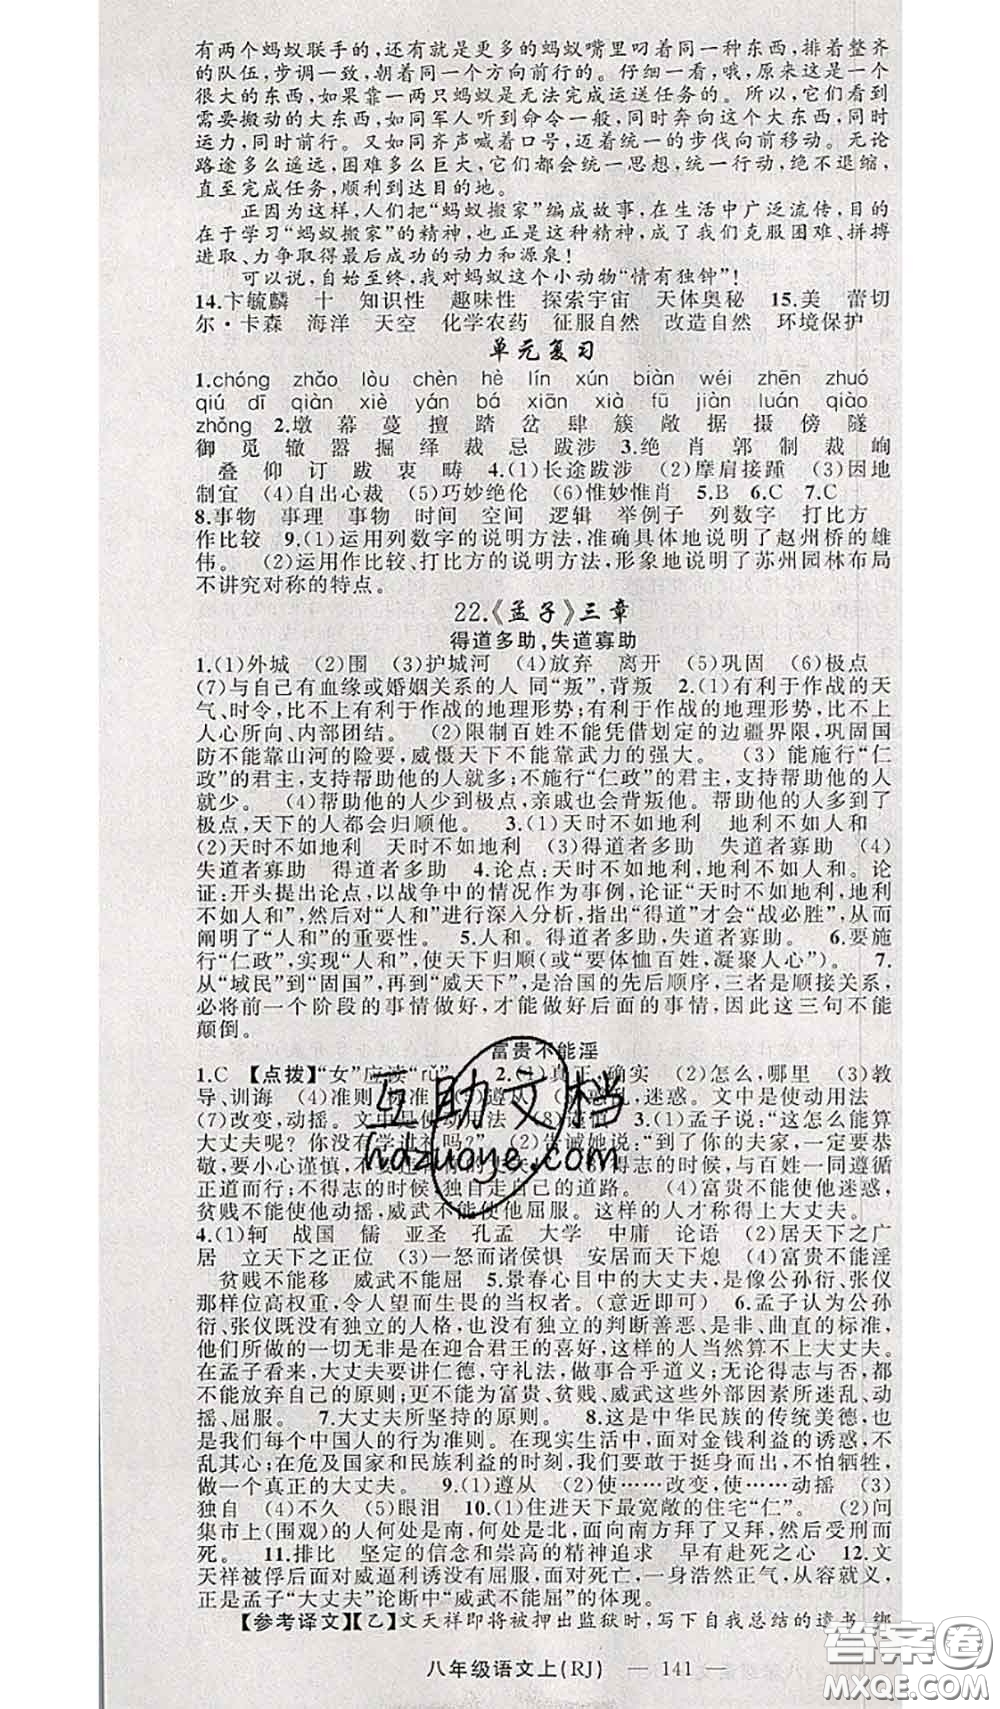 有两个蚂蚁联手的,还有就是更多的蚂蚁嘴里叼着同一种东西,排着整齐
的队伍,步调一致,朝着同一个方向前行的。仔细一看,哦,原来这是一个
很大的东西,如果靠一两只蚂蚁是无法完成运送任务的。所以,它们看到
需要搬动的大东西,如同军人听到命令一般,同时奔向这个大东西,同时
运力,同时前行。又如同齐声喊着口号,迈着统一的步伐向前移动。无论
路途多么遥远,困难多么巨大,它们都会统一思想,统一行动,绝不退缩,
直至完成任务,顺利到达目的地。
正因为这样,人们把“蚂蚁搬家”编成故事,在生活中广泛流传,目的
在于学习“蚂蚁搬家”的精神,也正是这种精神,成了我们克服困难、拼搏
进取、力争取得最后成功的动力和源泉!
可以说,自始至终,我对蚂蚁这个小动物“情有独钟”!
14.卞毓麟 十 知识性 趣味性 探索宇宙 天体奥秘 15.美 蕾切
尔·卡森 海洋 天空 化学农药 征服自然 改造自然 环境保护
单元复习
1.chóng zhǎo lòu chèn hè lín xún biàn wéi zhēn zhuó
qiú dī qiàn xiè yán bá xiān xià fū jiàn luán qiào
zhǒng 2.墩 幕 蔓 擅 踏 岔 肆 簇 敞 据 摄 傍 隧
御 觅 辙 嚣 掘 绎 裁 忌 跋涉 3.绝 肖 郭 制 裁 峋
叠 仰 订 跋 衷 畴 4.(1)长途跋涉 (2)摩肩接踵 (3)因地
制宜 (4)自出心裁 (5)巧妙绝伦 (6)惟妙惟肖 5.B 6.C 7.C
8.事物 事理 事物 时间 空间 逻辑 举例子 列数字 打比方
作比较 9.(1)运用列数字的说明方法,准确具体地说明了赵州桥的雄
伟。 (2)运用作比较、打比方的说明方法,形象地说明了苏州园林布局
不讲究对称的特点。
22.《孟子》三章
得道多助,失道寡助
1.(1)外城 (2)围 (3)护城河 (4)放弃 离开 (5)巩固 (6)极点
(7)与自己有血缘或婚姻关系的人 同“叛”,背叛 2.(1)有利于作战的天
气、时令,比不上有利于作战的地理形势;有利于作战的地理形势,比不上
人心所向、内部团结。 (2)限制百姓不能凭借划定的边疆界限,巩固国
防不能靠山河的险要,威慑天下不能靠武力的强大。 (3)能施行“仁
政”的君主,支持帮助他的人就多;不施行“仁政”的君主,支持帮助他的人
就少。 (4)帮助他的人少到极点,亲戚也会背叛他。帮助他的人多到了
极点,天下的人都会归顺他。 3.(1)天时不如地利 地利不如人和
(2)天时不如地利 天时不如地利 (3)得道者多助 失道者寡助 (4)
失道者寡助 得道者多助 4.论点:天时不如地利,地利不如人和。论
证:开头提出论点,以战争中的情况作为事例,论证“天时不如地利,地利
不如人和”,然后对“人和”进行深入分析,指出“得道”才会“战必胜”,从而
阐明了“人和”的重要性。 5.人和。得道者多助,失道者寡助。 6.要施
行“仁政”,实现“人和”,使天下归顺(或“要体恤百姓,凝聚人心”)。 7.
从“域民”到“固国”,再到“威天下”,是治国的先后顺序,三者是顺接关系,
必将前一个阶段的事情做好,才能做好后面的事情,因此这三句不能
颠倒。
富贵不能淫
1.C 【点拨】“女”应读“rǔ”。 2.(1)真正 确实 (2)怎么,哪里 (3)教
导、训诲 (4)准则 标准 (5)遵从 (6)惑乱,迷惑。文中是使动用法
(7)改变,动摇。文中是使动用法 (8)屈服 3.(1)孟子说:“这怎么能算
大丈夫呢?你没有学过礼吗?” (2)告诫她说:“到了你的夫家,一定要恭
敬,要小心谨慎,不要违背你的丈夫。” (3)得志的时候,与百姓一同遵循
正道而行;不得志的时候,独自走自己的道路。 (4)富贵不能使他迷惑,
贫贱不能使他动摇,威武不能使他屈服。这样的人才称得上大丈夫。
4.(1)轲 战国 儒 亚圣 孔孟 大学 中庸 论语 (2)居天下之广
居 立天下之正位 (3)一怒而诸侯惧 安居而天下熄 (4)富贵不能淫
贫贱不能移 威武不能屈 5.景春心目中的大丈夫,是像公孙衍、张仪
那样位高权重,令人望而生畏的当权者。(意近即可) 6.孟子认为公孙
衍、张仪既没有独立的人格,也没有独立的判断善恶、是非、曲直的标准,
他们所做的一切无非是在迎合君王的喜好,这样的人当然算不上大丈夫。
在孟子看来,大丈夫要讲仁德,守礼法,做事合乎道义;无论得志与否,都不
能放弃自己的原则;更不能为富贵、贫贱、威武这些外部因素所迷乱、动
摇、屈服。 7.大丈夫所坚持的原则。 8.这是中华民族的传统美德,也
是我们每个中国人的行为准则。在现实生活中,面对金钱利益的诱惑,不
乱其心;在危及国家和民族利益的时刻,我们要敢于挺身而出,不怕牺牲,
做一个真正的大丈夫。 9.(1)遵从 (2)使……改变,使……动摇 (3)
独自 (4)不久 (5)眼泪 10.(1)住进天下最宽敞的住宅“仁”。 (2)问
集市上(围观)的人何处是南,何处是北,面向南方拜了又拜,然后受刑而
死。 11.排比 坚定的信念和崇高的精神追求 早有赴死之心 12.文
天祥被俘后面对威逼利诱没有屈服,面对死亡,一身浩然正气,从容就义,
正是孟子“大丈夫”论断中“威武不能屈”的体现。
【参考译文】【乙】文天祥即将被押出监狱时,写下自我总结的遗书,绑
八年级语文上(RJ) — 141 —
互助文档
hdzuoye.com
答案圈
MXQE.COM